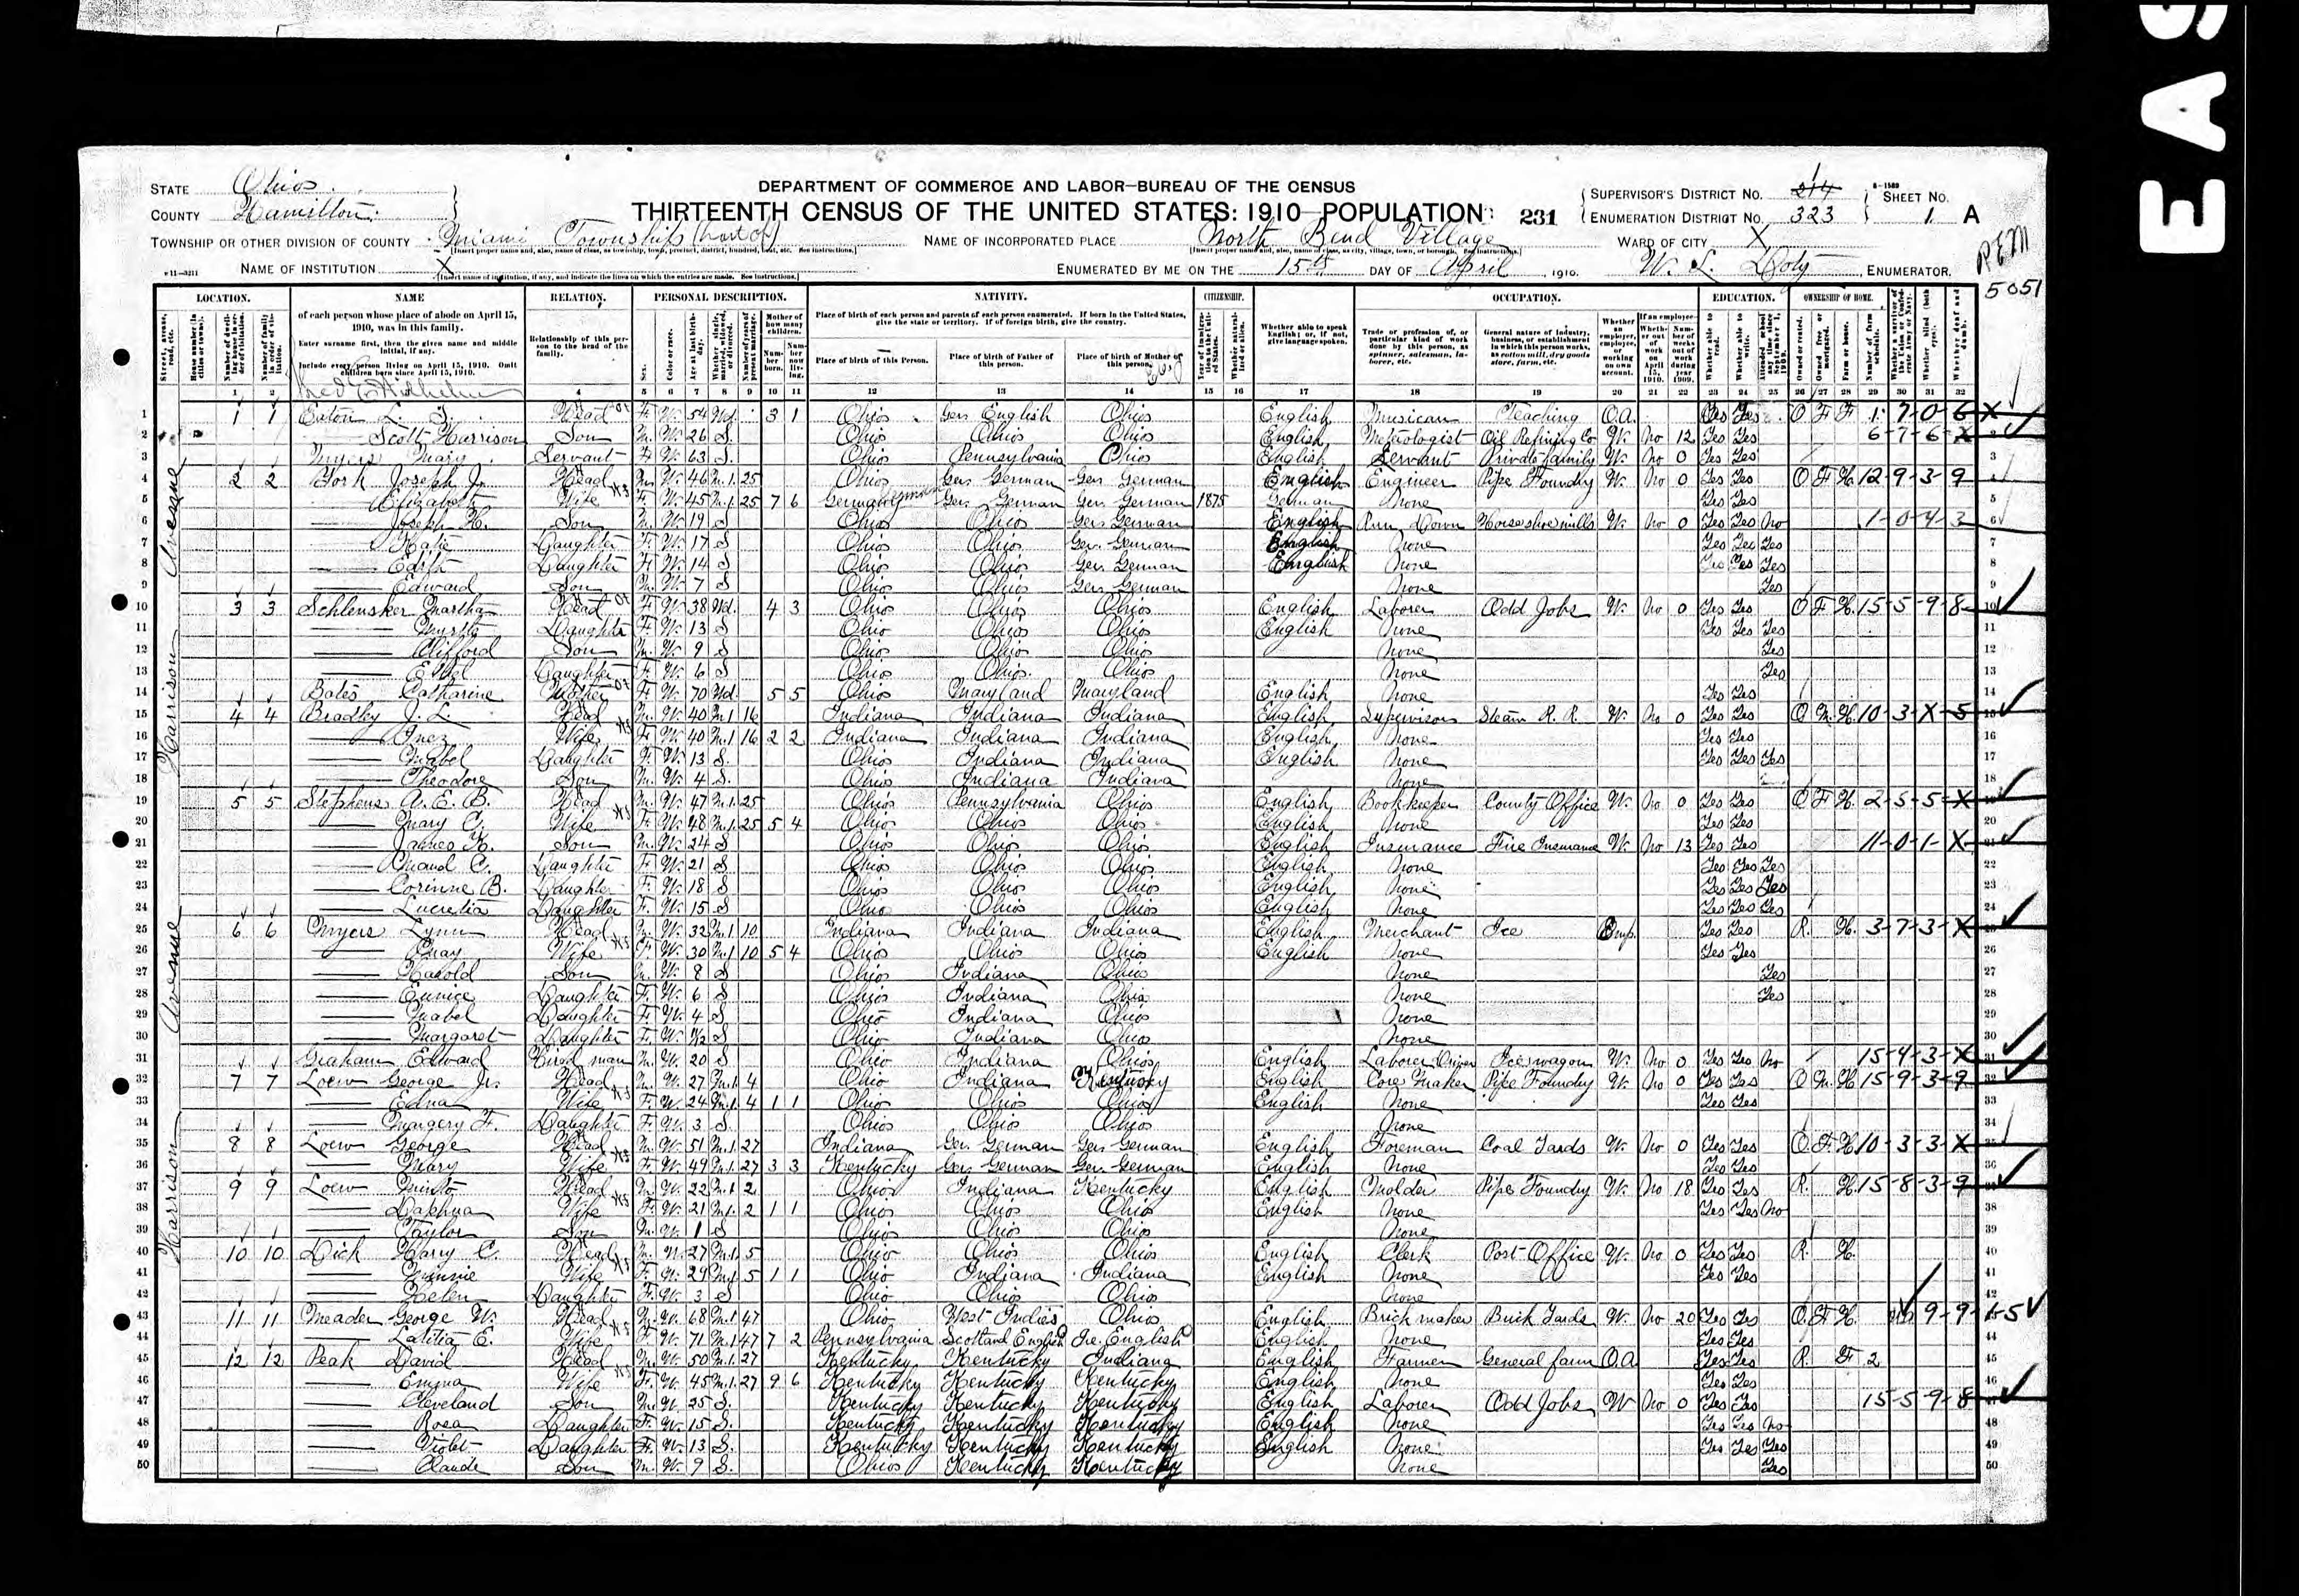 EAS
STATE Ohio
COUNTY Hamilton
DEPARTMENT OF COMMERCE AND LABOR—BUREAU OF THE CENSUS
THIRTEENTH CENSUS OF THE UNITED STATES: 1910—POPULATION
231
SUPERVISOR'S DISTRICT NO. 214 1
ENUMERATION DISTRICT NO. 323
8-1589
SHEET NO. 1 A
TOWNSHIP OR OTHER DIVISION OF COUNTY Miami Township (part of)
NAME OF INCORPORATED PLACE North Bend Village
WARD OF CITY X
NAME OF INSTITUTION X
ENUMERATED BY ME ON THE 15th DAY OF April, 1910. W. L. Doty, ENUMERATOR.
5051
LOCATION. NAME RELATION. PERSONAL DESCRIPTION. NATIVITY. CITIZENSHIP. OCCUPATION. EDUCATION. OWNERSHIP OF HOME.
of each person whose place of abode on April 15, 1910, was in this family.
Enter surname first, then the given name and middle initial, if any.
Include every person living on April 15, 1910. Omit children born since April 15, 1910.
Relationship of this person to the head of the family.
Place of birth of each person and parents of each person enumerated. If born in the United States, give the state or territory. If of foreign birth, give the country.
Place of birth of this Person. Place of birth of Father of this person. Place of birth of Mother of this person.
Whether able to speak English; or, if not, give language spoken.
Trade or profession of, or particular kind of work done by this person, as spinner, salesman, laborer, etc.
General nature of industry, business, or establishment in which this person works, as cotton mill, dry goods store, farm, etc.
1 2 4 5 6 7 8 9 10 11 12 13 14 15 16 17 18 19 20 21 22 23 24 25 26 27 28 29 30 31 32
Harrison Avenue
1 1 1 Head F W 54 Wd 3 1 Ohio Ger English Ohio English Musician Teaching O.A. Yes Yes O F F 1
2 Scott Harrison Son M W 26 S Ohio Ohio Ohio English Oil Refining Co W No 12 Yes Yes
3 Myers Mary Servant F W 63 S Ohio Pennsylvania Ohio English Servant Private family W No 0 Yes Yes
4 2 2 York Joseph Jr Head M W 46 M1 25 Ohio Ger German Ger German English Engineer Pipe Foundry W No 0 Yes Yes O F H
5 Elizabeth Wife F W 45 M1 25 7 6 Ger German Ger German Ger German 1875 German None Yes Yes
6 Joseph H. Son M W 19 S Ohio Ohio Ger German English W No 0 Yes Yes No
7 Katie Daughter F W 17 S Ohio Ohio Ger German English None Yes Yes Yes
8 Edith Daughter F W 14 S Ohio Ohio Ger German English None Yes Yes Yes
9 Edward Son M W 7 S Ohio Ohio Ger German None Yes
10 3 3 Schlensker Martha Head F W 38 Wd 4 3 Ohio Ohio Ohio English Laborer Odd Jobs W No 0 Yes Yes O F H
11 Myrtle Daughter F W 13 S Ohio Ohio Ohio English None Yes Yes Yes
12 Clifford Son M W 9 S Ohio Ohio Ohio None Yes
13 Ethel Daughter F W 6 S Ohio Ohio Ohio None Yes
14 Bates Catharine Mother F W 70 Wd 5 5 Ohio Maryland Maryland English None Yes Yes
15 4 4 Bradley J. L. Head M W 40 M1 16 Indiana Indiana Indiana English Supervisor Steam R. R. W No 0 Yes Yes O M H
16 Inez Wife F W 40 M1 16 2 2 Indiana Indiana Indiana English None Yes Yes
17 Mabel Daughter F W 13 S Ohio Indiana Indiana English None Yes Yes Yes
18 Theodore Son M W 4 S Ohio Indiana Indiana None
19 5 5 Stephens A. E. B. Head M W 47 M1 25 Ohio Pennsylvania Ohio English Bookkeeper County Office W No 0 Yes Yes O F H
20 Mary C. Wife F W 48 M1 25 5 4 Ohio Ohio Ohio English None Yes Yes
21 James H. Son M W 24 S Ohio Ohio Ohio English Insurance Fire Insurance W No 13 Yes Yes
22 Maud C. Daughter F W 21 S Ohio Ohio Ohio English None Yes Yes Yes
23 Corinne B. Daughter F W 18 S Ohio Ohio Ohio English None Yes Yes Yes
24 Lucretia Daughter F W 15 S Ohio Ohio Ohio English None Yes Yes Yes
25 6 6 Myers Lynn Head M W 32 M1 10 Indiana Indiana Indiana English Merchant Ice Emp. Yes Yes R H
26 May Wife F W 30 M1 10 5 4 Ohio Ohio Ohio English None Yes Yes
27 Harold Son M W 8 S Ohio Indiana Ohio None Yes
28 Eunice Daughter F W 6 S Ohio Indiana Ohio None Yes
29 Mabel Daughter F W 4 S Ohio Indiana Ohio None
30 Margaret Daughter F W S Ohio Indiana Ohio None
31 Graham Edward Hired man M W 20 S Ohio Indiana Ohio English Laborer Driver Ice wagon W No 0 Yes Yes No
32 7 7 Loew George Jr. Head M W 27 M1 4 Ohio Indiana Kentucky English Core Maker Pipe Foundry W No 0 Yes Yes O M H
33 Edna Wife F W 24 M1 4 1 1 Ohio Ohio Ohio English None Yes Yes
34 Margery F. Daughter F W 3 S Ohio Ohio Ohio None
35 8 8 Loew George Head M W 51 M1 27 Indiana Ger German Ger German English Foreman Coal Yards W No 0 Yes Yes O F H
36 Mary Wife F W 49 M1 27 3 3 Kentucky Ger German Ger German English None Yes Yes
37 9 9 Loew Head M W 22 M1 2 Ohio Indiana Kentucky English Molder Pipe Foundry W No 18 Yes Yes R H
38 Wife F W 21 M1 2 1 1 Ohio Ohio Ohio English None Yes Yes No
39 Taylor Son M W 1 S Ohio Ohio Ohio None
40 10 10 Dick Harry C. Head M W 27 M1 5 Ohio Ohio Ohio English Clerk Post Office W No 0 Yes Yes R H
41 Minnie Wife F W 29 M1 5 1 1 Ohio Indiana Indiana English None Yes Yes
42 Helen Daughter F W 3 S Ohio Ohio Ohio None
43 11 11 Meader George W. Head M W 68 M1 47 Ohio West Indies Ohio English Brick maker Brick Yards W No 20 Yes Yes O F H
44 Latitia E. Wife F W 71 M1 47 7 2 Pennsylvania Scotland English Ire. English English None Yes Yes
45 12 12 Peak David Head M W 50 M1 27 Kentucky Kentucky Indiana English Farmer General farm O.A. Yes Yes R F 2
46 Emma Wife F W 45 M1 27 9 6 Kentucky Kentucky Kentucky English None Yes Yes
47 Cleveland Son M W 25 S Kentucky Kentucky Kentucky English Laborer Odd Jobs W No 0 Yes Yes
48 Rosa Daughter F W 15 S Kentucky Kentucky Kentucky English None Yes Yes No
49 Violet Daughter F W 13 S Kentucky Kentucky Kentucky English None Yes Yes Yes
50 Claude Son M W 9 S Ohio Kentucky Kentucky None Yes